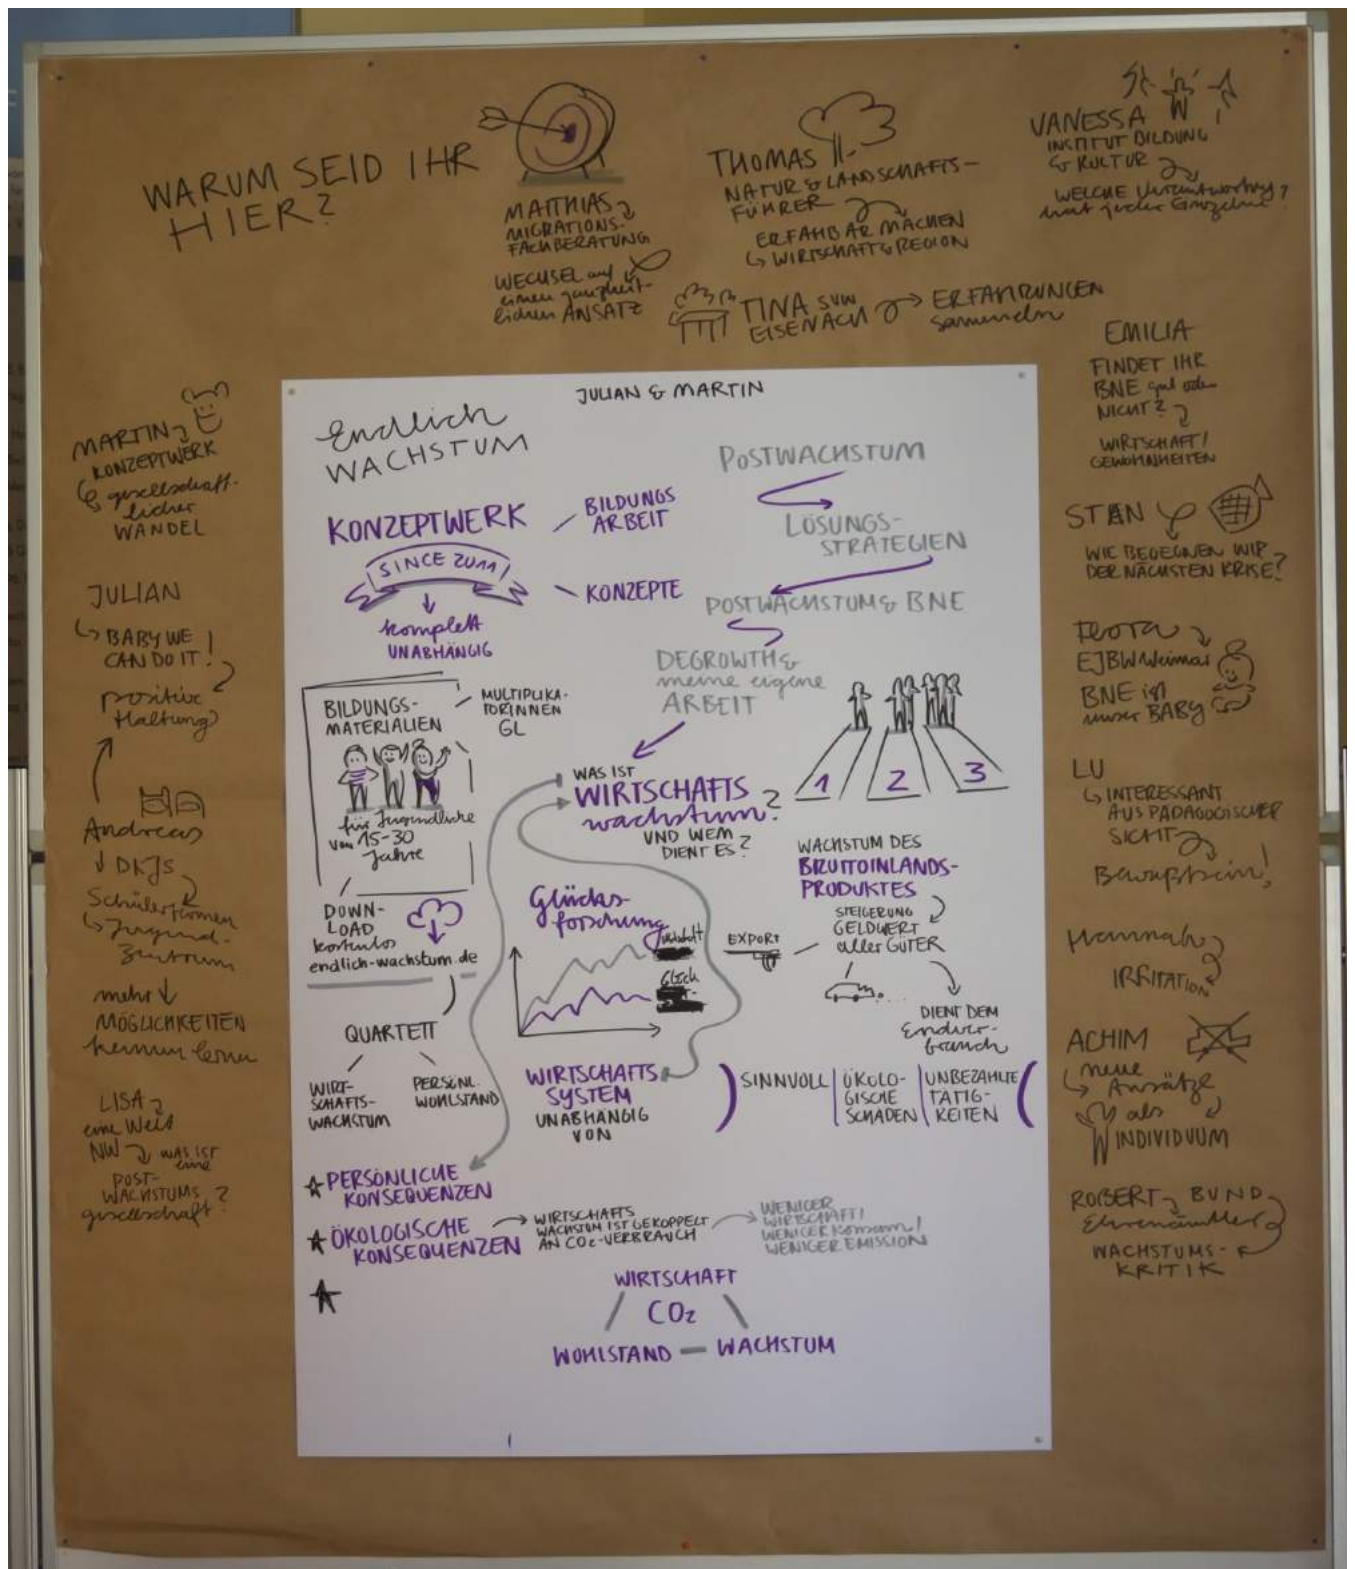 WARUM SEID IHR
HIER?
MATTHIAS
MIGRATIONS-
FACHBERATUNG
WECHSEL auf
einen ganzheit-
lichen ANSATZ
THOMAS
NATUR & LANDSCHAFTS-
FÜHRER
ERFAHBAR MACHEN
WIRTSCHAFT & REGION
VANESSA
INSTITUT BILDUNG
& KULTUR
WELCHE Verantwortung
hat jeder Einzelne?
TINA SVW
EISENACH
ERFAHRUNGEN
sammeln
EMILIA
FINDET IHR
BNE gut oder
NICHT?
WIRTSCHAFT/
GEWOHNHEITEN
STAN
WIE BEGEGNEN WIR
DER NÄCHSTEN KRISE?
EJBW Weimar
BNE ist
unser BABY
LU
INTERESSANT
AUS PÄDAGOGISCHER
SICHT
Bewußtsein!
Hannah
IRRITATION
ACHIM
neue
Ansätze
als
INDIVIDUUM
ROBERT BUND
Ehrenämtler
WACHSTUMS-
KRITIK
MARTIN
KONZEPTWERK
gesellschaft-
licher
WANDEL
JULIAN
BABY WE
CAN DO IT!
positive
Haltung
Andreas
DKJS
Schülerfirmen
Jugend-
Zentrum
mehr
MÖGLICHKEITEN
kennen lernen
LISA
eine Welt
NW WAS IST
eine
POST-
WACHSTUMS
gesellschaft?
JULIAN & MARTIN
Endlich
WACHSTUM
KONZEPTWERK
SINCE 2011
komplett
UNABHÄNGIG
BILDUNGS
ARBEIT
KONZEPTE
POSTWACHSTUM
LÖSUNGS-
STRATEGIEN
POSTWACHSTUM & BNE
DEGROWTH &
meine eigene
ARBEIT
BILDUNGS-
MATERIALIEN
für Jugendliche
von 15-30
Jahre
MULTIPLIKA-
TORINNEN
GL
DOWN-
LOAD
kostenlos
endlich-wachstum.de
QUARTETT
WIRT-
SCHAFTS-
WACHSTUM
PERSÖNL.
WOHLSTAND
WAS IST
WIRTSCHAFTS
wachstum?
UND WEM
DIENT ES?
1 2 3
WACHSTUM DES
BRUTTOINLANDS-
PRODUKTES
STEIGERUNG
GELDWERT
aller GÜTER
EXPORT
DIENT DEM
Endver-
brauch
Glücks-
forschung
Glück
WIRTSCHAFTS
SYSTEM
UNABHÄNGIG
VON
SINNVOLL
ÖKOLO-
GISCHE
SCHADEN
UNBEZAHLTE
TÄTIG-
KEITEN
PERSÖNLICHE
KONSEQUENZEN
ÖKOLOGISCHE
KONSEQUENZEN
WIRTSCHAFTS
WACHSTUM IST GEKOPPELT
AN CO2-VERBRAUCH
WENIGER
WIRTSCHAFT!
WENIGER Konsum!
WENIGER EMISSION
WIRTSCHAFT
CO2
WOHLSTAND - WACHSTUM